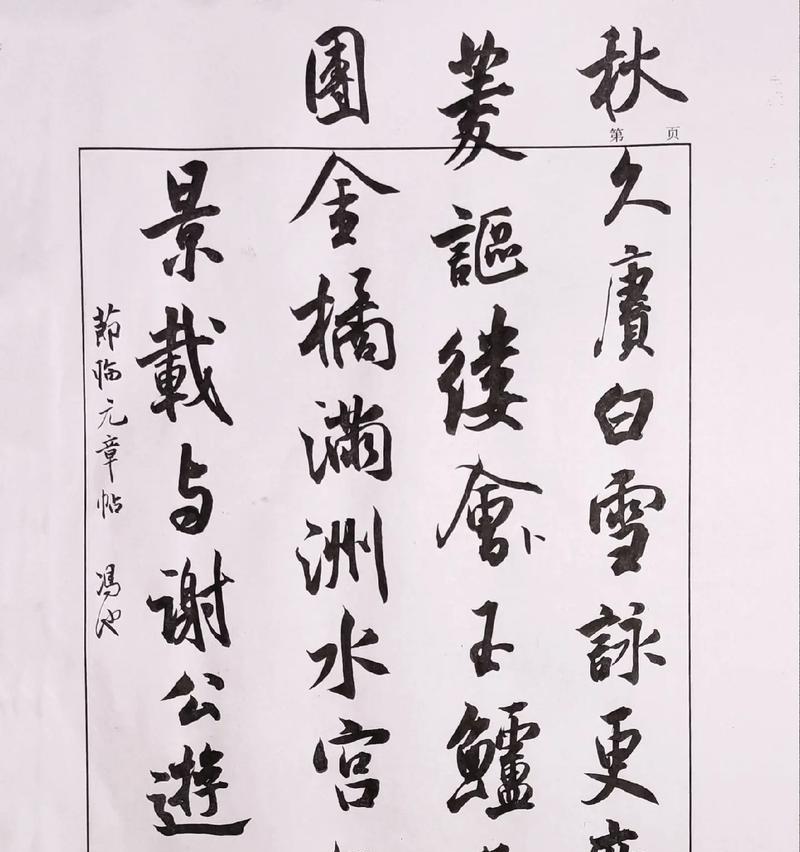 第 页
秋久賡白雪詠更
菱謳縷會卜玉鱸
團金橘滿洲水宮
景載与谢公遊
節临元章帖 馮